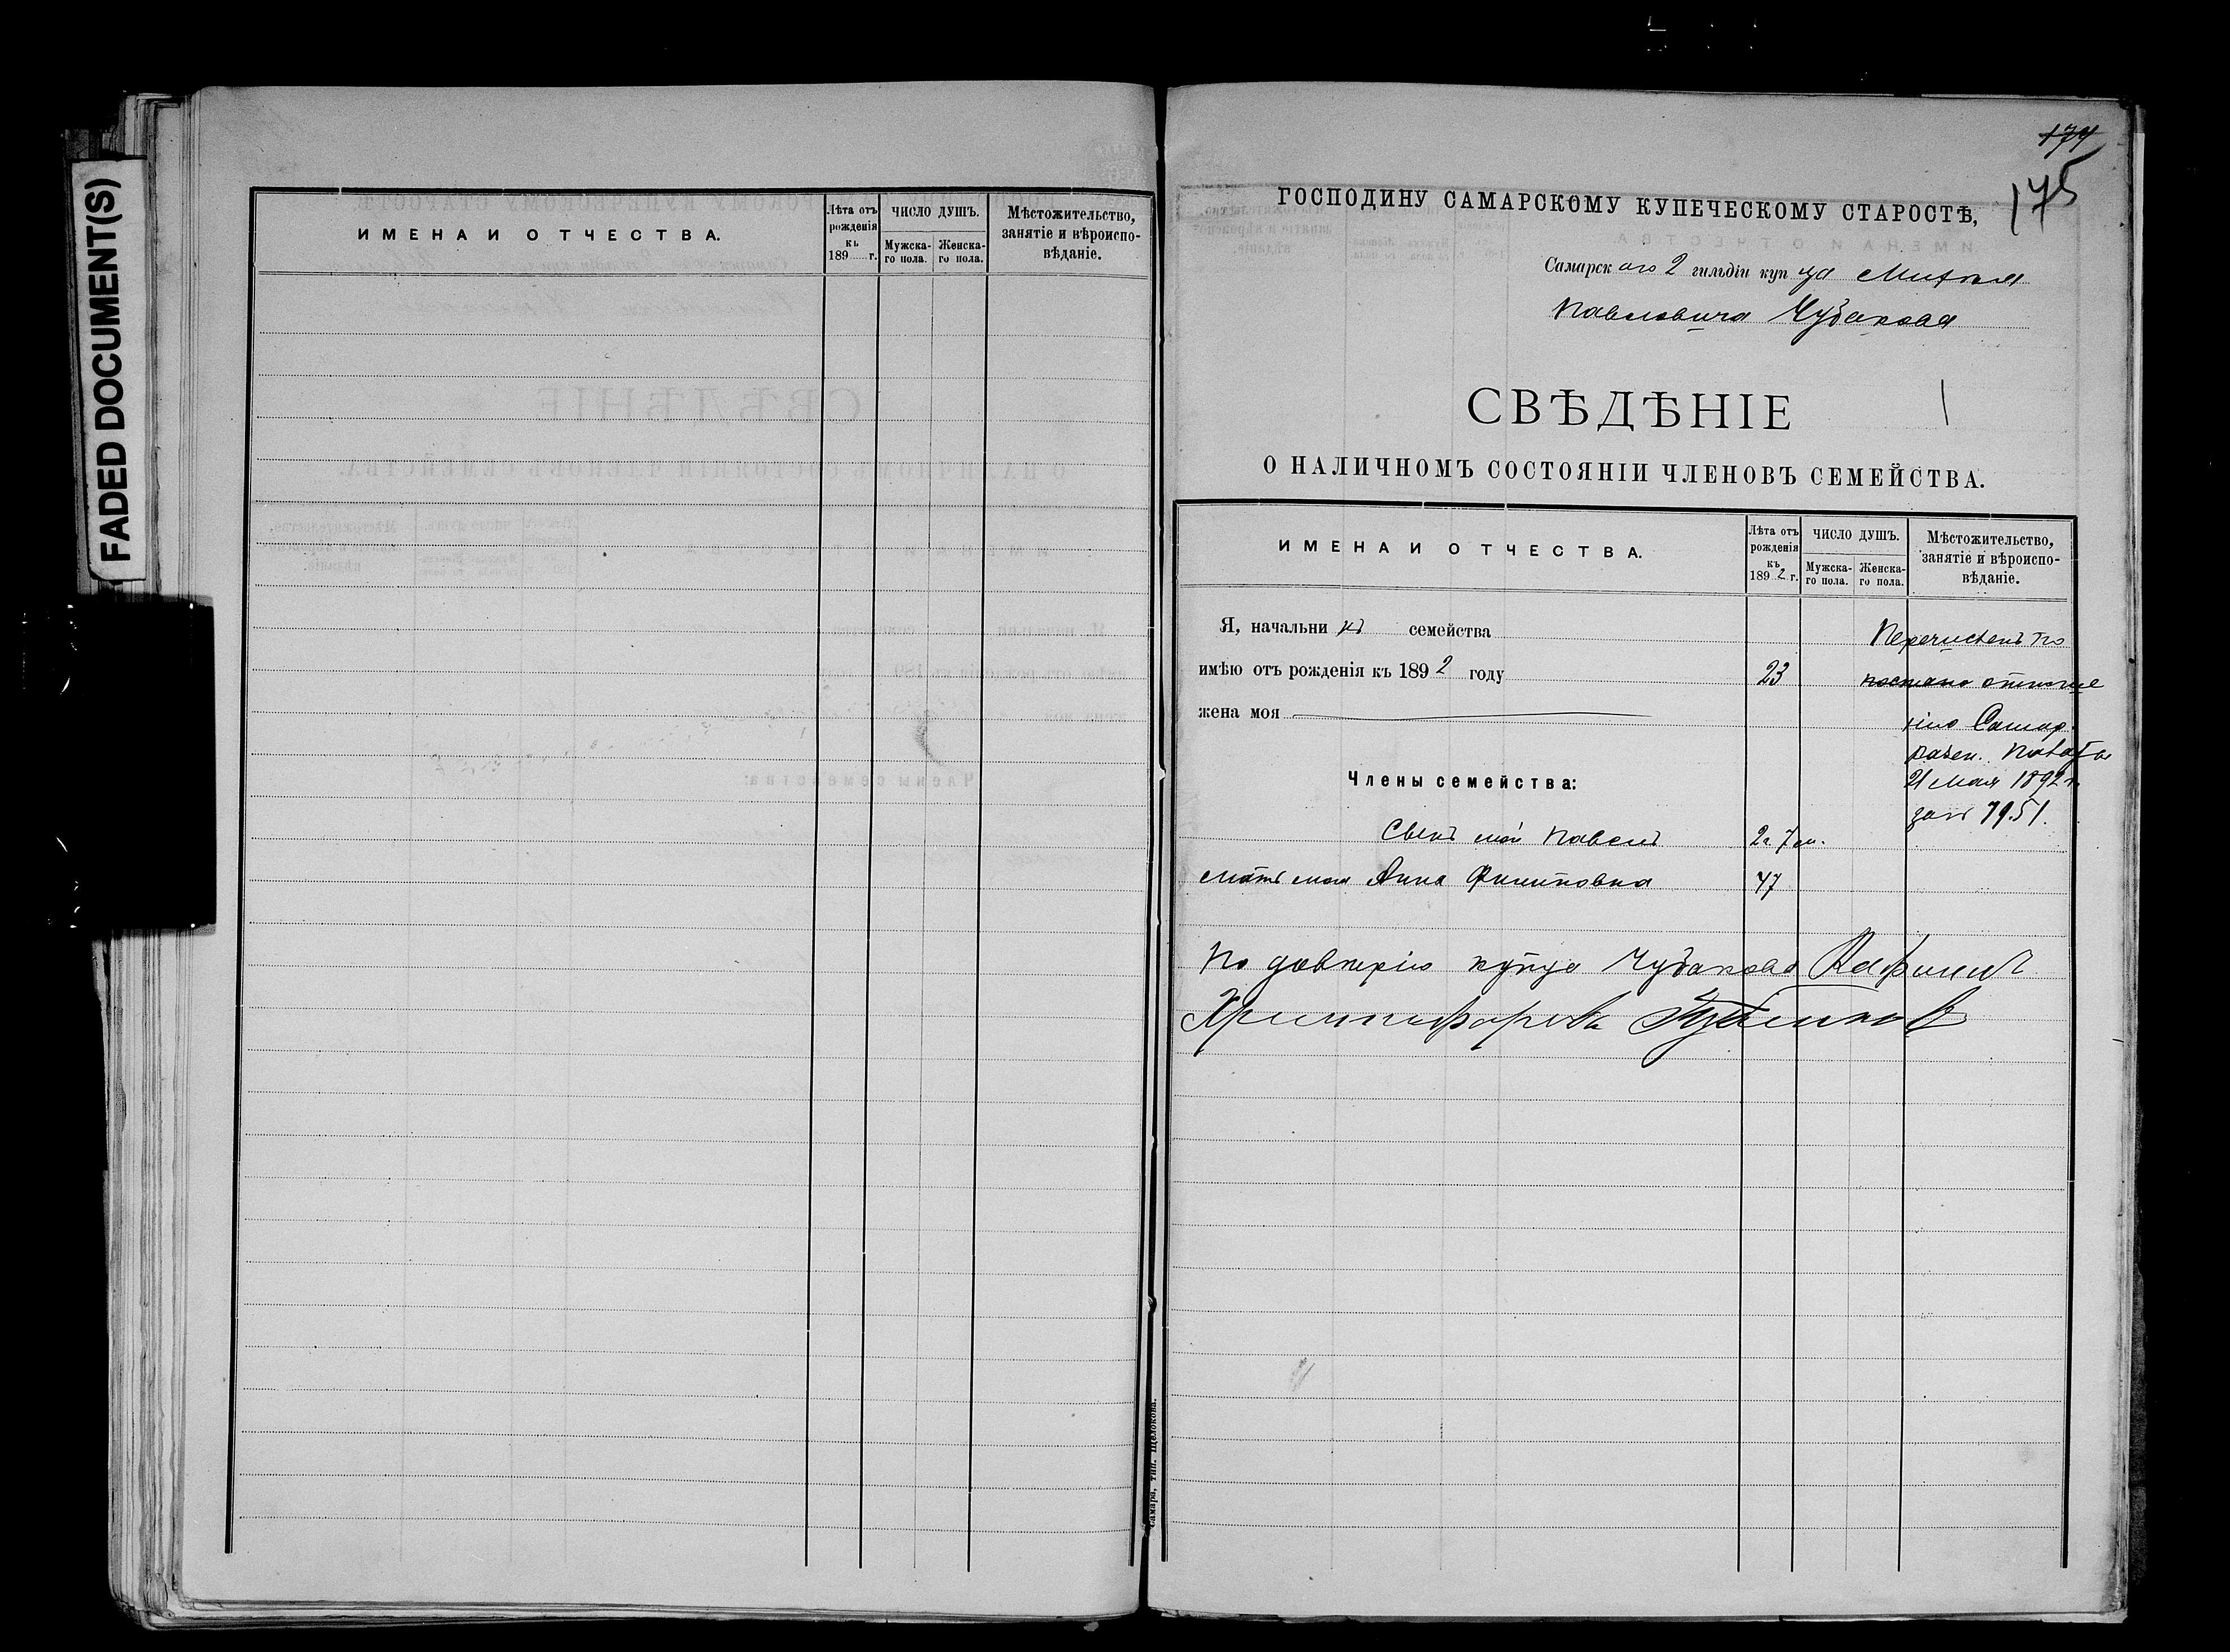 FADED DOCUMENT(S)
ИМЕНА И ОТЧЕСТВА.
Лѣта отъ рожденія къ 189 г.
ЧИСЛО ДУШЪ.
Мужска-го пола.
Женска-го пола.
Мѣстожительство, занятіе и вѣроиспо-вѣданіе.
Самара, тип. Щелокова.
174
175
ГОСПОДИНУ САМАРСКОМУ КУПЕЧЕСКОМУ СТАРОСТѢ,
Самарскаго 2 гильдіи купца
Павловича Чубакова
СВѢДѢНІЕ
О НАЛИЧНОМЪ СОСТОЯНІИ ЧЛЕНОВЪ СЕМЕЙСТВА.
ИМЕНА И ОТЧЕСТВА.
Лѣта отъ рожденія къ 1892 г.
ЧИСЛО ДУШЪ.
Мужска-го пола.
Женска-го пола.
Мѣстожительство, занятіе и вѣроиспо-вѣданіе.
Я, начальникъ семейства
Перечисленъ по
имѣю отъ рожденія къ 1892 году 23
жена моя
нію Самар.
казен. палаты
21 мая 1892 г.
7951.
Члены семейства:
Сынъ мой Павелъ 2 г. 7 м.
мать моя Анна Филиповна 47
По довѣрію купца Чубакова